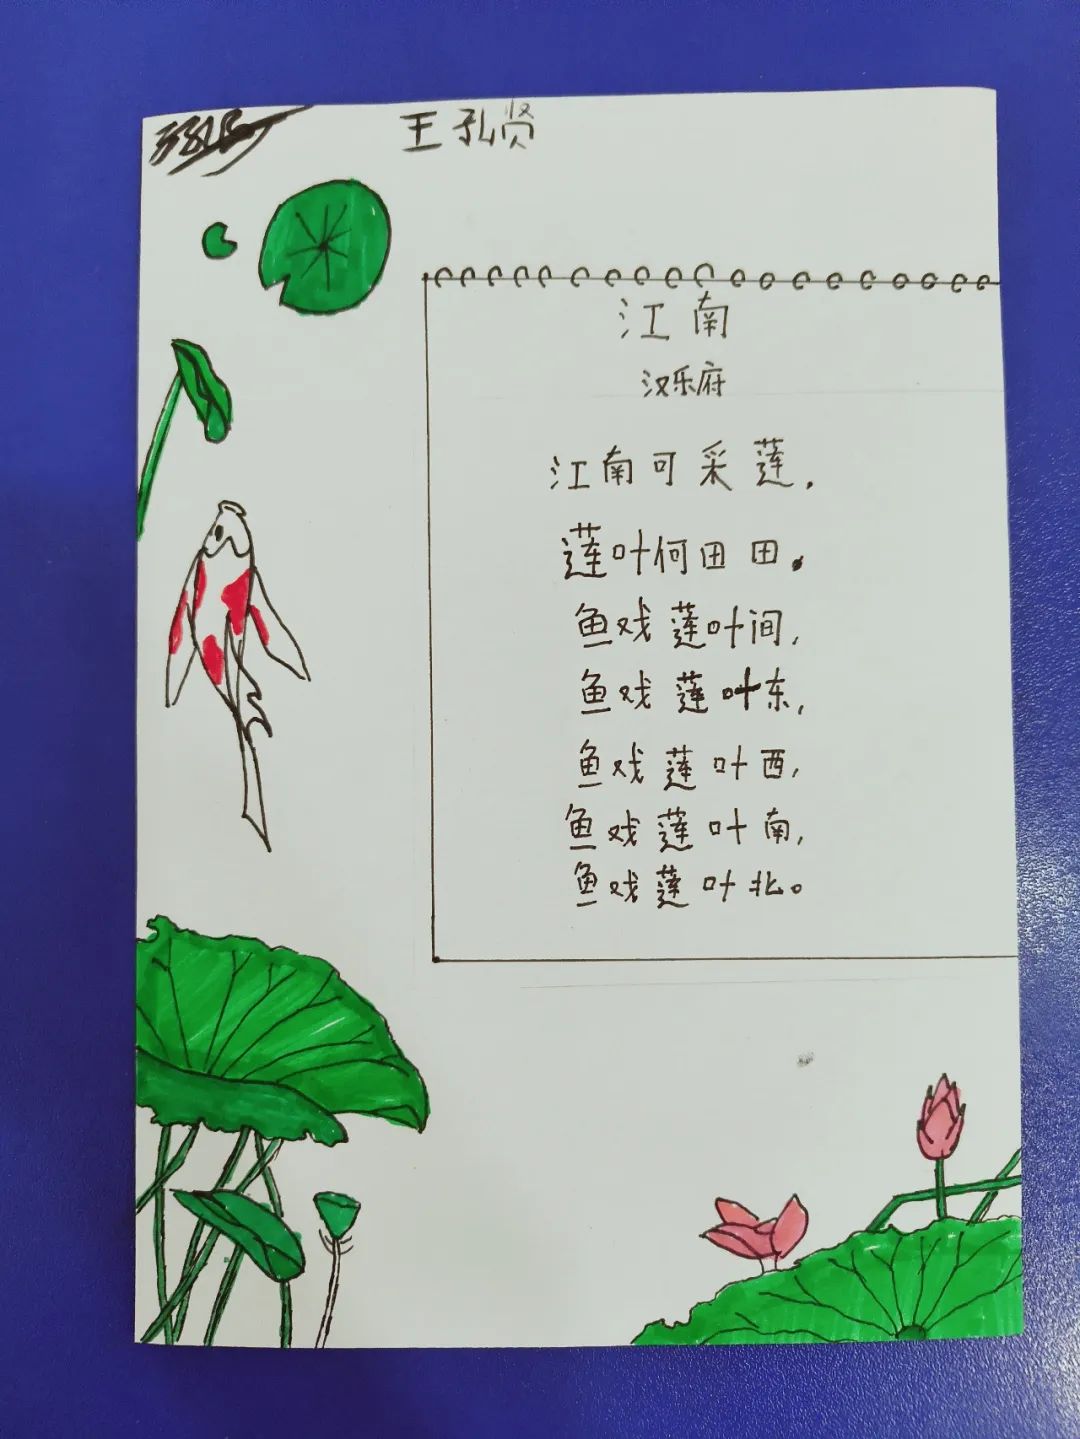 王孔贤
江南
汉乐府
江南可采莲,
莲叶何田田。
鱼戏莲叶间,
鱼戏莲叶东,
鱼戏莲叶西,
鱼戏莲叶南,
鱼戏莲叶北。